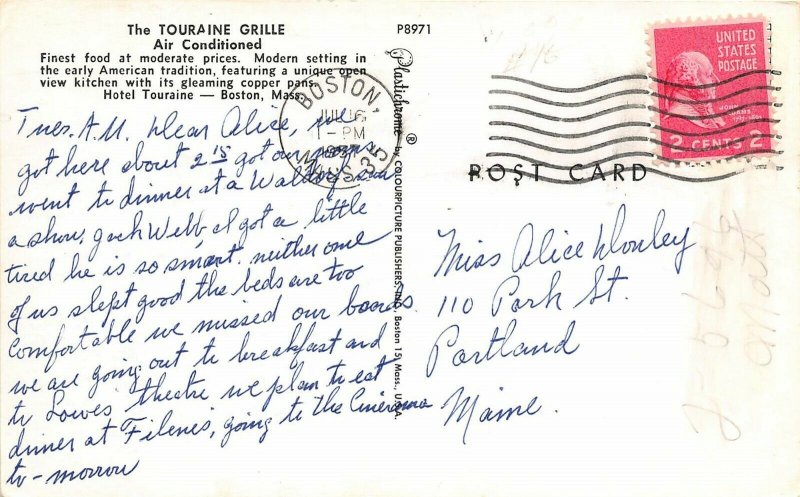 The TOURAINE GRILLE
Air Conditioned
Finest food at moderate prices. Modern setting in
the early American tradition, featuring a unique open
view kitchen with its gleaming copper pans.
Hotel Touraine — Boston, Mass.
P8971
Tues. A.M. Dear Alice, we
got here about 2 15 got our room
went to dinner at a Waldorf, saw
a show, Jack Webb. I got a little
tired he is so smart. neither one
of us slept good the beds are too
comfortable we missed our boards
we are going out to breakfast and
to Lowes theatre we plan to eat
dinner at Filenes, going to the Cinerama
to-morrow
Plastichrome ® by COLOURPICTURE PUBLISHERS, INC., Boston 15, Mass., U.S.A.
BOSTON,
JUL 16
1-PM
MASS. 35
UNITED
STATES
POSTAGE
JOHN
ADAMS
2 CENTS 2
POST CARD
Miss Alice Donley
110 Park St.
Portland
Maine.